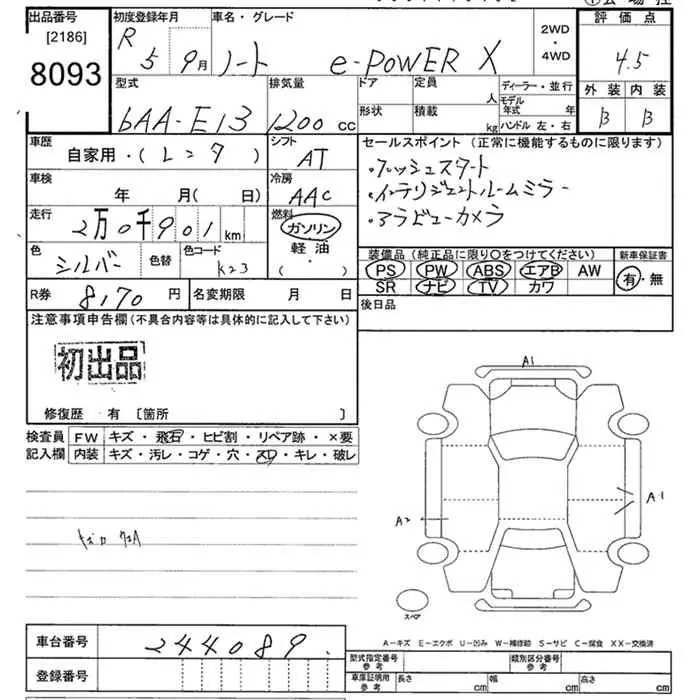 出品番号 初度登録年月 車名・グレード 2WD ・ 4WD 評価点
[2186] R 5 9月 ノート e-POWER X 4.5
8093 外装 内装
型式 排気量 ドア 定員 人 ディーラー・並行 B B
6AA-E13 1200 cc 形状 積載 kg モデル年式 年 ハンドル 左・右
車歴 自家用・(レンタ) シフト AT セールスポイント (正常に機能するものに限ります)
車検 年 月(日) 冷房 AAC ・プッシュスタート
・インテリジェントルームミラー
走行 2万0千901km 燃料 ガソリン 軽油 ・( ) ・アラビューカメラ
色 シルバー 色替 色コード K23 装備品 (純正品に限り○をつけてください) 新車保証書
PS PW ABS エアB AW 有・無
SR ナビ TV カワ
R券 8170 円 名変期限 月 日 後日品
注意事項申告欄(不具合内容等は具体的に記入して下さい)
初出品
修復歴 有 [箇所 ]
検査員 FW キズ・飛石・ヒビ割・リペア跡・×要
記入欄 内装 キズ・汚レ・コゲ・穴・スリ・キレ・破レ
A1
A1
A2
スペア
A-キズ E-エクボ U-凹み W-補修跡 S-サビ C-腐食 XX-交換済
車台番号 244089
登録番号
型式指定番号 参考 類別区分番号 参考
車庫証明用 参考 長さ cm 幅 cm 高さ cm